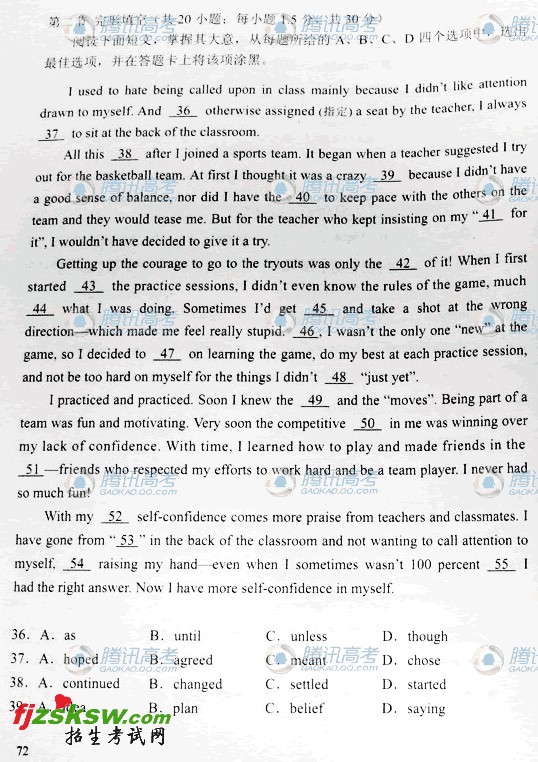 第二节 完形填空(共20小题;每小题1.5分,共30分)
阅读下面短文,掌握其大意,从每题所给的A、B、C、D四个选项中,选出
最佳选项,并在答题卡上将该项涂黑。
I used to hate being called upon in class mainly because I didn't like attention
drawn to myself. And 36 otherwise assigned (指定) a seat by the teacher, I always
37 to sit at the back of the classroom.
All this 38 after I joined a sports team. It began when a teacher suggested I try
out for the basketball team. At first I thought it was a crazy 39 because I didn't have
a good sense of balance, nor did I have the 40 to keep pace with the others on the
team and they would tease me. But for the teacher who kept insisting on my "41 for
it", I wouldn't have decided to give it a try.
Getting up the courage to go to the tryouts was only the 42 of it! When I first
started 43 the practice sessions, I didn't even know the rules of the game, much
44 what I was doing. Sometimes I'd get 45 and take a shot at the wrong
direction—which made me feel really stupid. 46, I wasn't the only one "new" at the
game, so I decided to 47 on learning the game, do my best at each practice session,
and not be too hard on myself for the things I didn't 48 "just yet".
I practiced and practiced. Soon I knew the 49 and the "moves". Being part of a
team was fun and motivating. Very soon the competitive 50 in me was winning over
my lack of confidence. With time, I learned how to play and made friends in the
51—friends who respected my efforts to work hard and be a team player. I never had
so much fun!
With my 52 self-confidence comes more praise from teachers and classmates. I
have gone from "53" in the back of the classroom and not wanting to call attention to
myself, 54 raising my hand—even when I sometimes wasn't 100 percent 55 I
had the right answer. Now I have more self-confidence in myself.
36. A. as B. until C. unless D. though
37. A. hoped B. agreed C. meant D. chose
38. A. continued B. changed C. settled D. started
39. A. idea B. plan C. belief D. saying
fjzsksw.com
招生考试网
72
腾讯高考
GAOKAO.QQ.COM